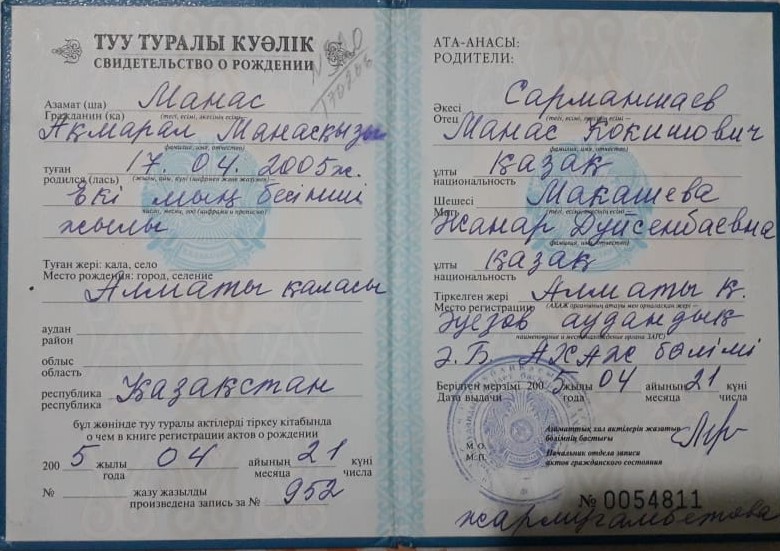 ТУУ ТУРАЛЫ КУӘЛІК
СВИДЕТЕЛЬСТВО О РОЖДЕНИИ
Азамат (ша) Манас
Гражданин (ка) (тегі, есімі, әкесінің есімі)
Ақмарал Манасқызы
фамилия, имя, отчество)
туған 17. 04. 2005ж.
родился (лась)
Екі мың бесінші
число, месяц, год (цифрами и прописью)
жылы
Туған жері: қала, село
Место рождения: город, селение
Алматы қаласы
аудан
район
облыс
область
республика Қазақстан
республика
бұл жөнінде туу туралы актілерді тіркеу кітабында
о чем в книге регистрации актов о рождении
200 5 жылы 04 айының 21 күні
года месяца числа
№ жазу жазылды
произведена запись за № 952
АТА-АНАСЫ:
РОДИТЕЛИ:
Әкесі Сарманшаев
Отец (тегі, есімі, әкесінің есімі)
Манас Кокишович
фамилия, имя, отчество)
ұлты қазақ
национальность
Шешесі Макашева
Мать (тегі, есімі, әкесінің есімі)
Жанар Дуйсенбаевна
фамилия, имя, отчество)
ұлты қазақ
национальность
Тіркелген жері Алматы қ.
Место регистрации (АХАЖ органының атауы мен орналасқан жері
Әуезов аудандық
наименование и местонахождение органа ЗАГС)
Ә.Б. АХАЖ бөлімі
Берілген мерзімі 200 5 жылы 04 айының 21 күні
Дата выдачи года месяца числа
Азаматтық хал актілерін жазатын
бөлімнің бастығы
М.О.
М.П.
Начальник отдела записи
актов гражданского состояния
№ 0054811